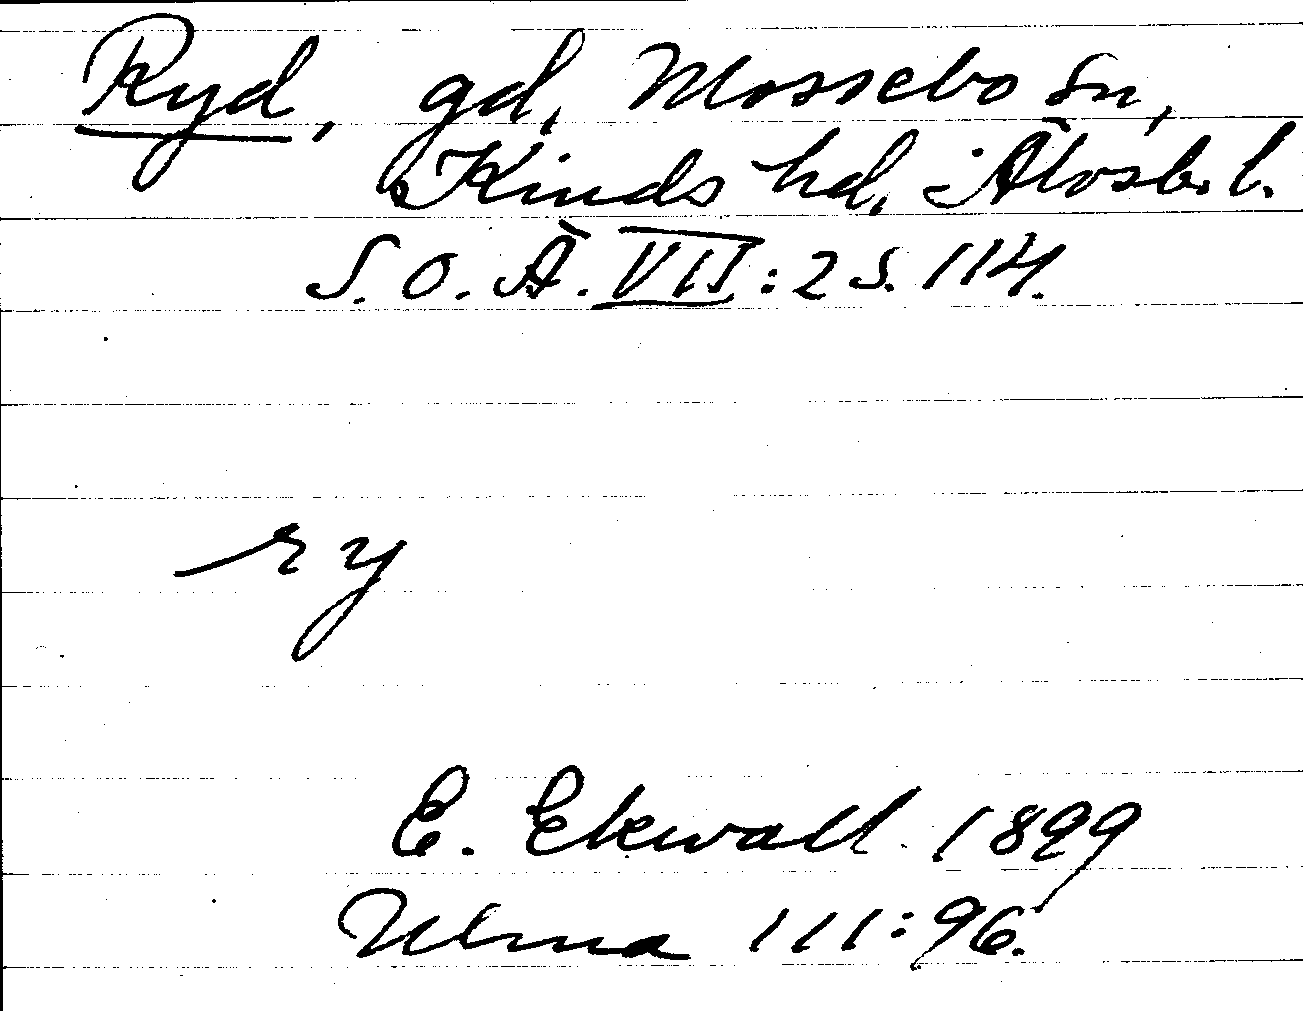 Ryd, gd, Mossebo sn,
Kinds hd, Älvsb. l.
S. O. Ä. VII: 2 s. 114.
ry
E. Ekwall 1899
Ulma 111:96.